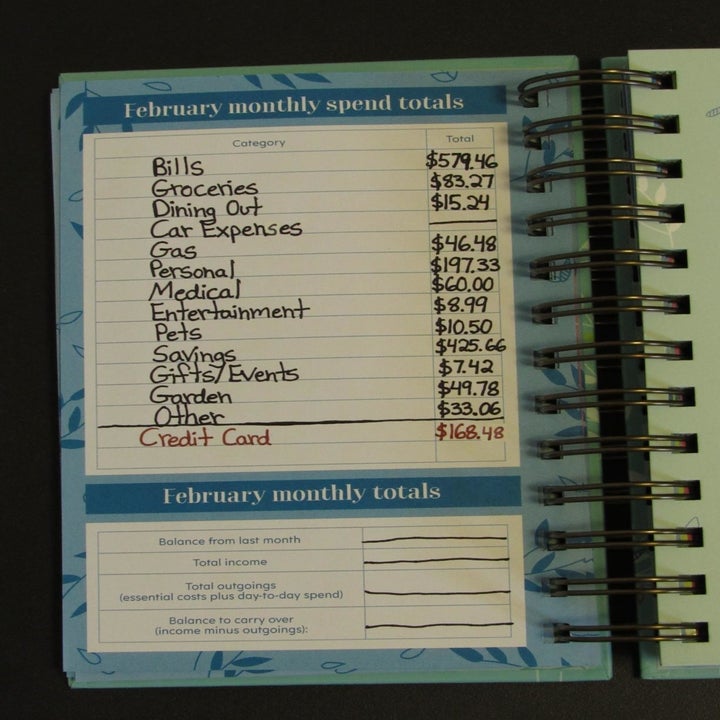 February monthly spend totals
Category Total
Bills $579.46
Groceries $83.27
Dining Out $15.24
Car Expenses
Gas $46.48
Personal $197.33
Medical $60.00
Entertainment $8.99
Pets $10.50
Savings $425.66
Gifts/Events $7.42
Garden $49.78
Other $33.06
Credit Card $168.48
February monthly totals
Balance from last month
Total income
Total outgoings
(essential costs plus day-to-day spend)
Balance to carry over
(income minus outgoings):